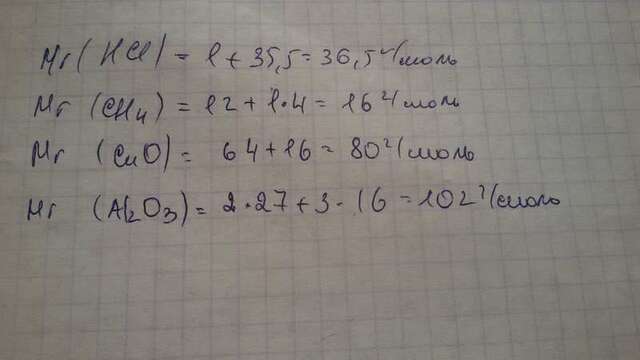 Mr (HCl) = 1 + 35,5 = 36,5 г/моль
Mr (CH4) = 12 + 1·4 = 16 г/моль
Mr (CuO) = 64 + 16 = 80 г/моль
Mr (Al2O3) = 2·27 + 3·16 = 102 г/моль